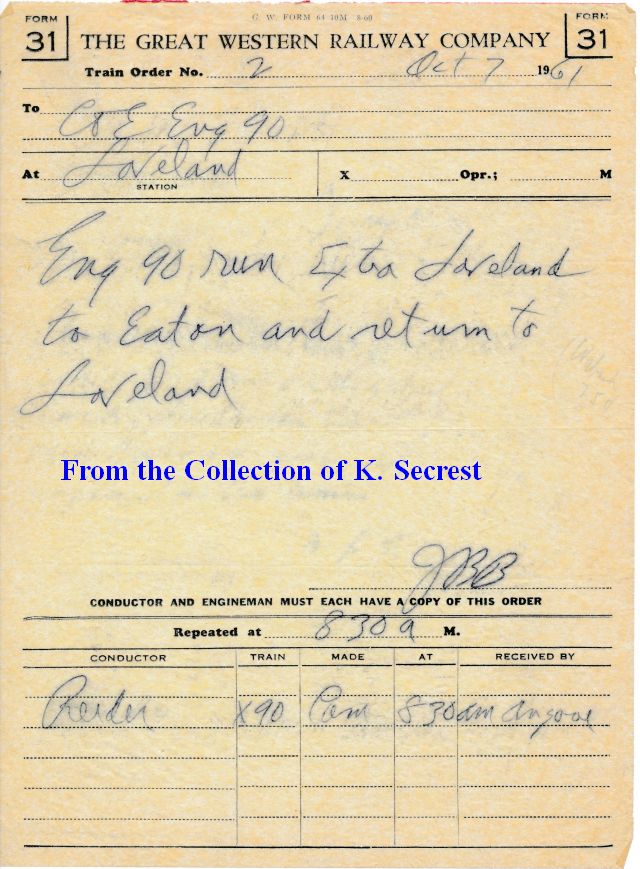 G. W. FORM 64 10M 8-60
FORM 31 THE GREAT WESTERN RAILWAY COMPANY FORM 31
Train Order No. 2 Oct 7 1961
To C&E Eng 90
At Loveland X Opr.; M
STATION
Eng 90 run Extra Loveland
to Eaton and return to
Loveland
From the Collection of K. Secrest
JBB
CONDUCTOR AND ENGINEMAN MUST EACH HAVE A COPY OF THIS ORDER
Repeated at 830 a M.
CONDUCTOR TRAIN MADE AT RECEIVED BY
Reider X90 Com 830am